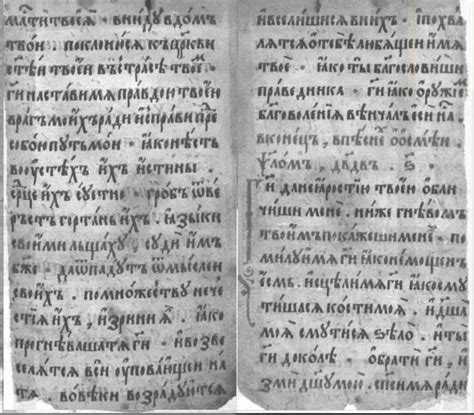 мл҃титвоеѧ · вниду вдомъ
твои · поклонюсѧ къцр҃кви
ст҃ѣи твоеи въстрасѣ твоемъ ·
г҃и наставимѧ правдою твоею
врагъ моихъ ради исправи пре
собою путь мои · ꙗко нѣсть
во оустѣхъ ихъ истины ·
срц҃е ихъ суетно · гробъ ѿве
рьстъ гортань ихъ · ꙗзыки
своими льщаху, суди имъ
бж҃е · да ѿпадутъ ѿмыслеи
своихъ · помножеству нече
стиꙗ ихъ, изринѧ · ꙗко
прогнѣваша тѧ г҃и · ивозве
селѧтсѧ вси оуповающеи на
тѧ · вовѣки возрадуютсѧ
ивселишисѧ вънихъ · ипохва
лѧтсѧ отебѣ любѧщеи имѧ
твое · ꙗко ты благословиши
праведника · г҃и ꙗко оружие
благоволениꙗ вѣнчалъ еси на
вконець, въпѣсне о осмѣи ·
ѱалом, дв҃дв · ѕ ·
г҃и данеꙗростию твоею обли
чиши мене · ниже гнѣвомъ
твоимъ покажеши мене · по
милуи мѧ г҃и ꙗко немощенъ
есмь · исцели мѧ г҃и ꙗко сму
тишасѧ кости моꙗ · и дш҃а
моꙗ смутисѧ ѕѣло · иты
г҃и доколѣ · обрати г҃и, и
зми дш҃у мою · спси мѧ ради